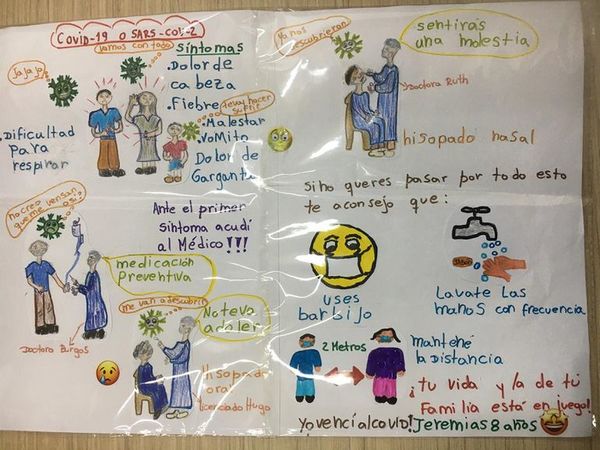 Covid-19 o SARS-COV-2
Vamos con todo
Ja ja ja
Síntomas
.Dolor de
cabeza
.Fiebre
Te voy hacer
sufrir
.Malestar
.Vomito
Dolor de
Garganta
.Dificultad
Para
respirar
Ante el primer
síntoma acudí
al Médico!!!
no creo
que me vensan
así
medicación
Preventiva
Doctora Burgos
me van a descubrir
No te va
a doler
Hisopado
oral
Licenciado Hugo
Ya nos
descubrieron
sentirás
una molestia
Doctora Ruth
hisopado nasal
Si no queres pasar por todo esto
te aconsejo que:
uses
barbijo
Jabón
Lavate Las
manos con frecuencia
2 Metros
mantené
la Distancia
¡tu vida y la de tú
Familia está en juego!
Yo vencí al covid! Jeremias 8 años